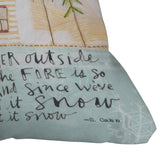 ER outside
the FIRE is so
AND since we've
it SNOW
t it snow
-S. Cahn